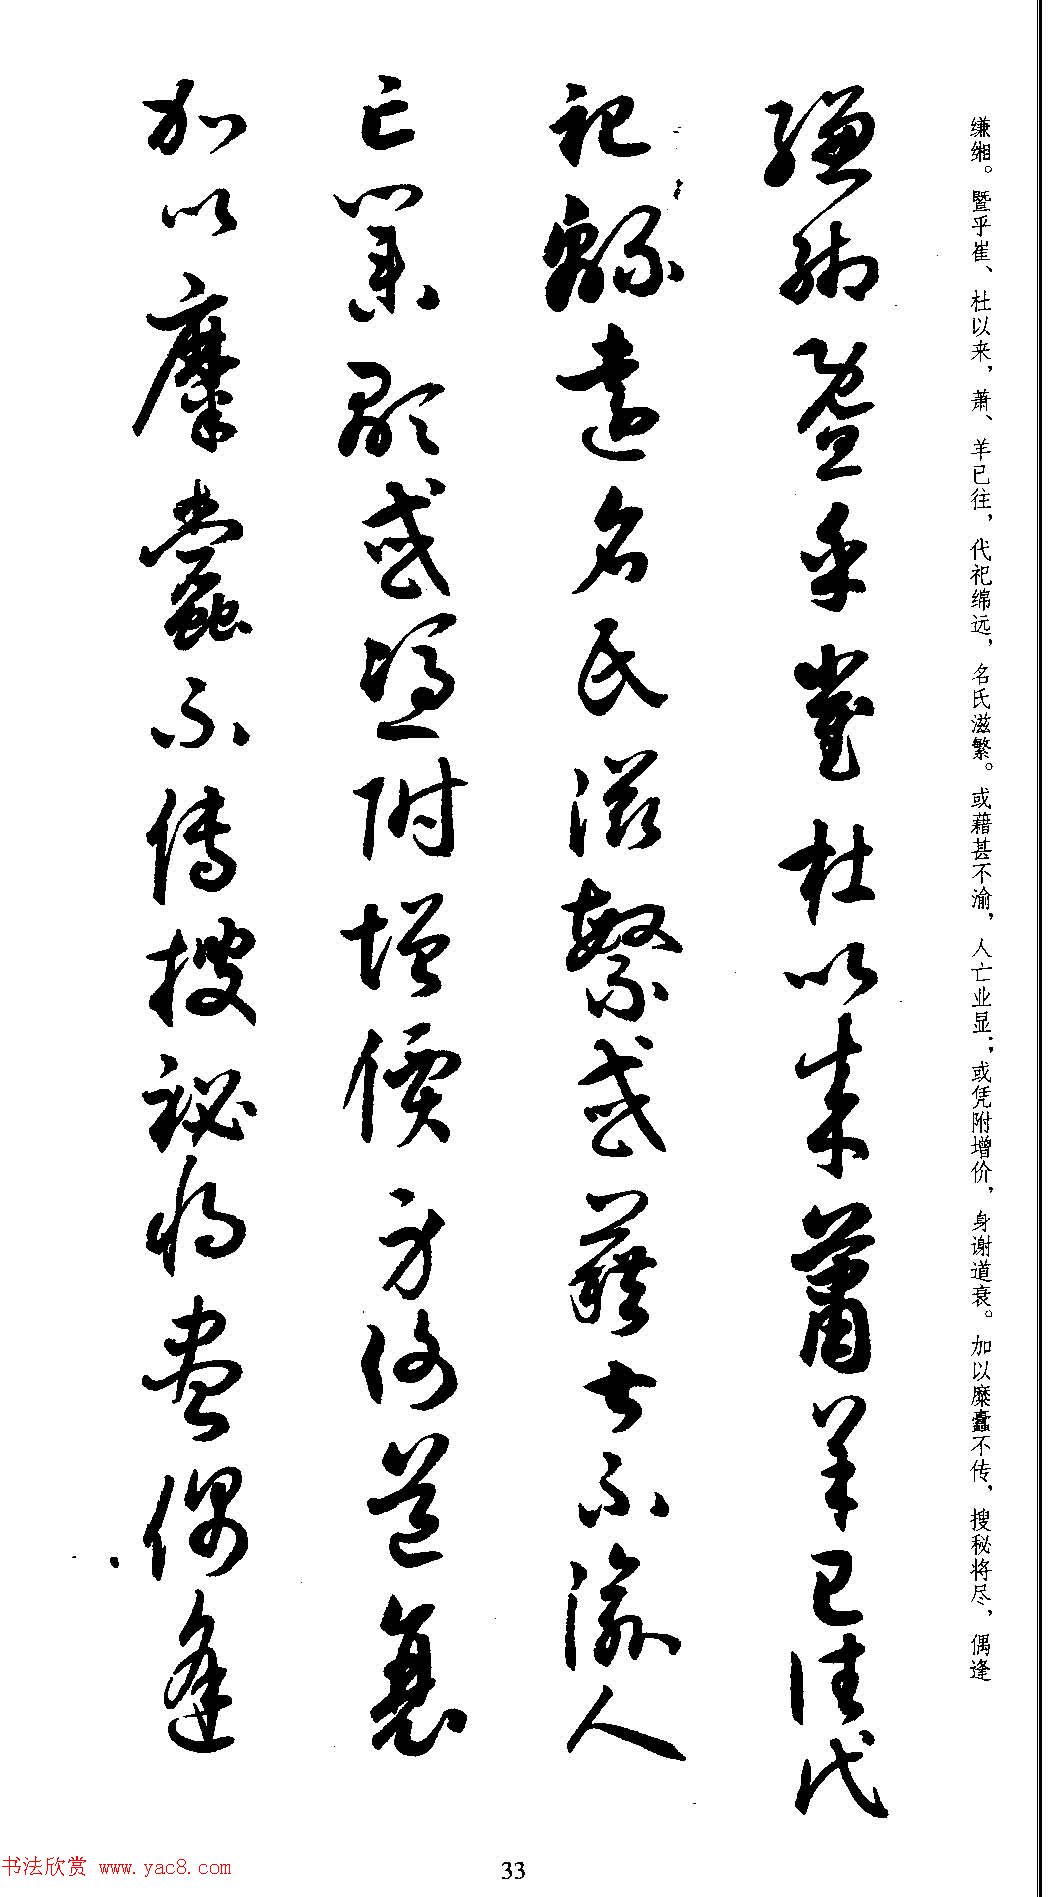 缣缃。暨乎崔、杜以来，萧、羊已往，代祀绵远，名氏滋繁。或藉甚不渝，人亡业显；或凭附增价，身谢道衰。加以糜蠹不传，搜秘将尽，偶逢
縑緗暨乎崔杜以来蕭羊已往代
祀緜遠名氏滋繁或藉甚不渝人
亡業顯或憑附增價身謝道衰
加以糜蠹不傳搜祕將盡偶逢
33
书法欣赏 www.yac8.com